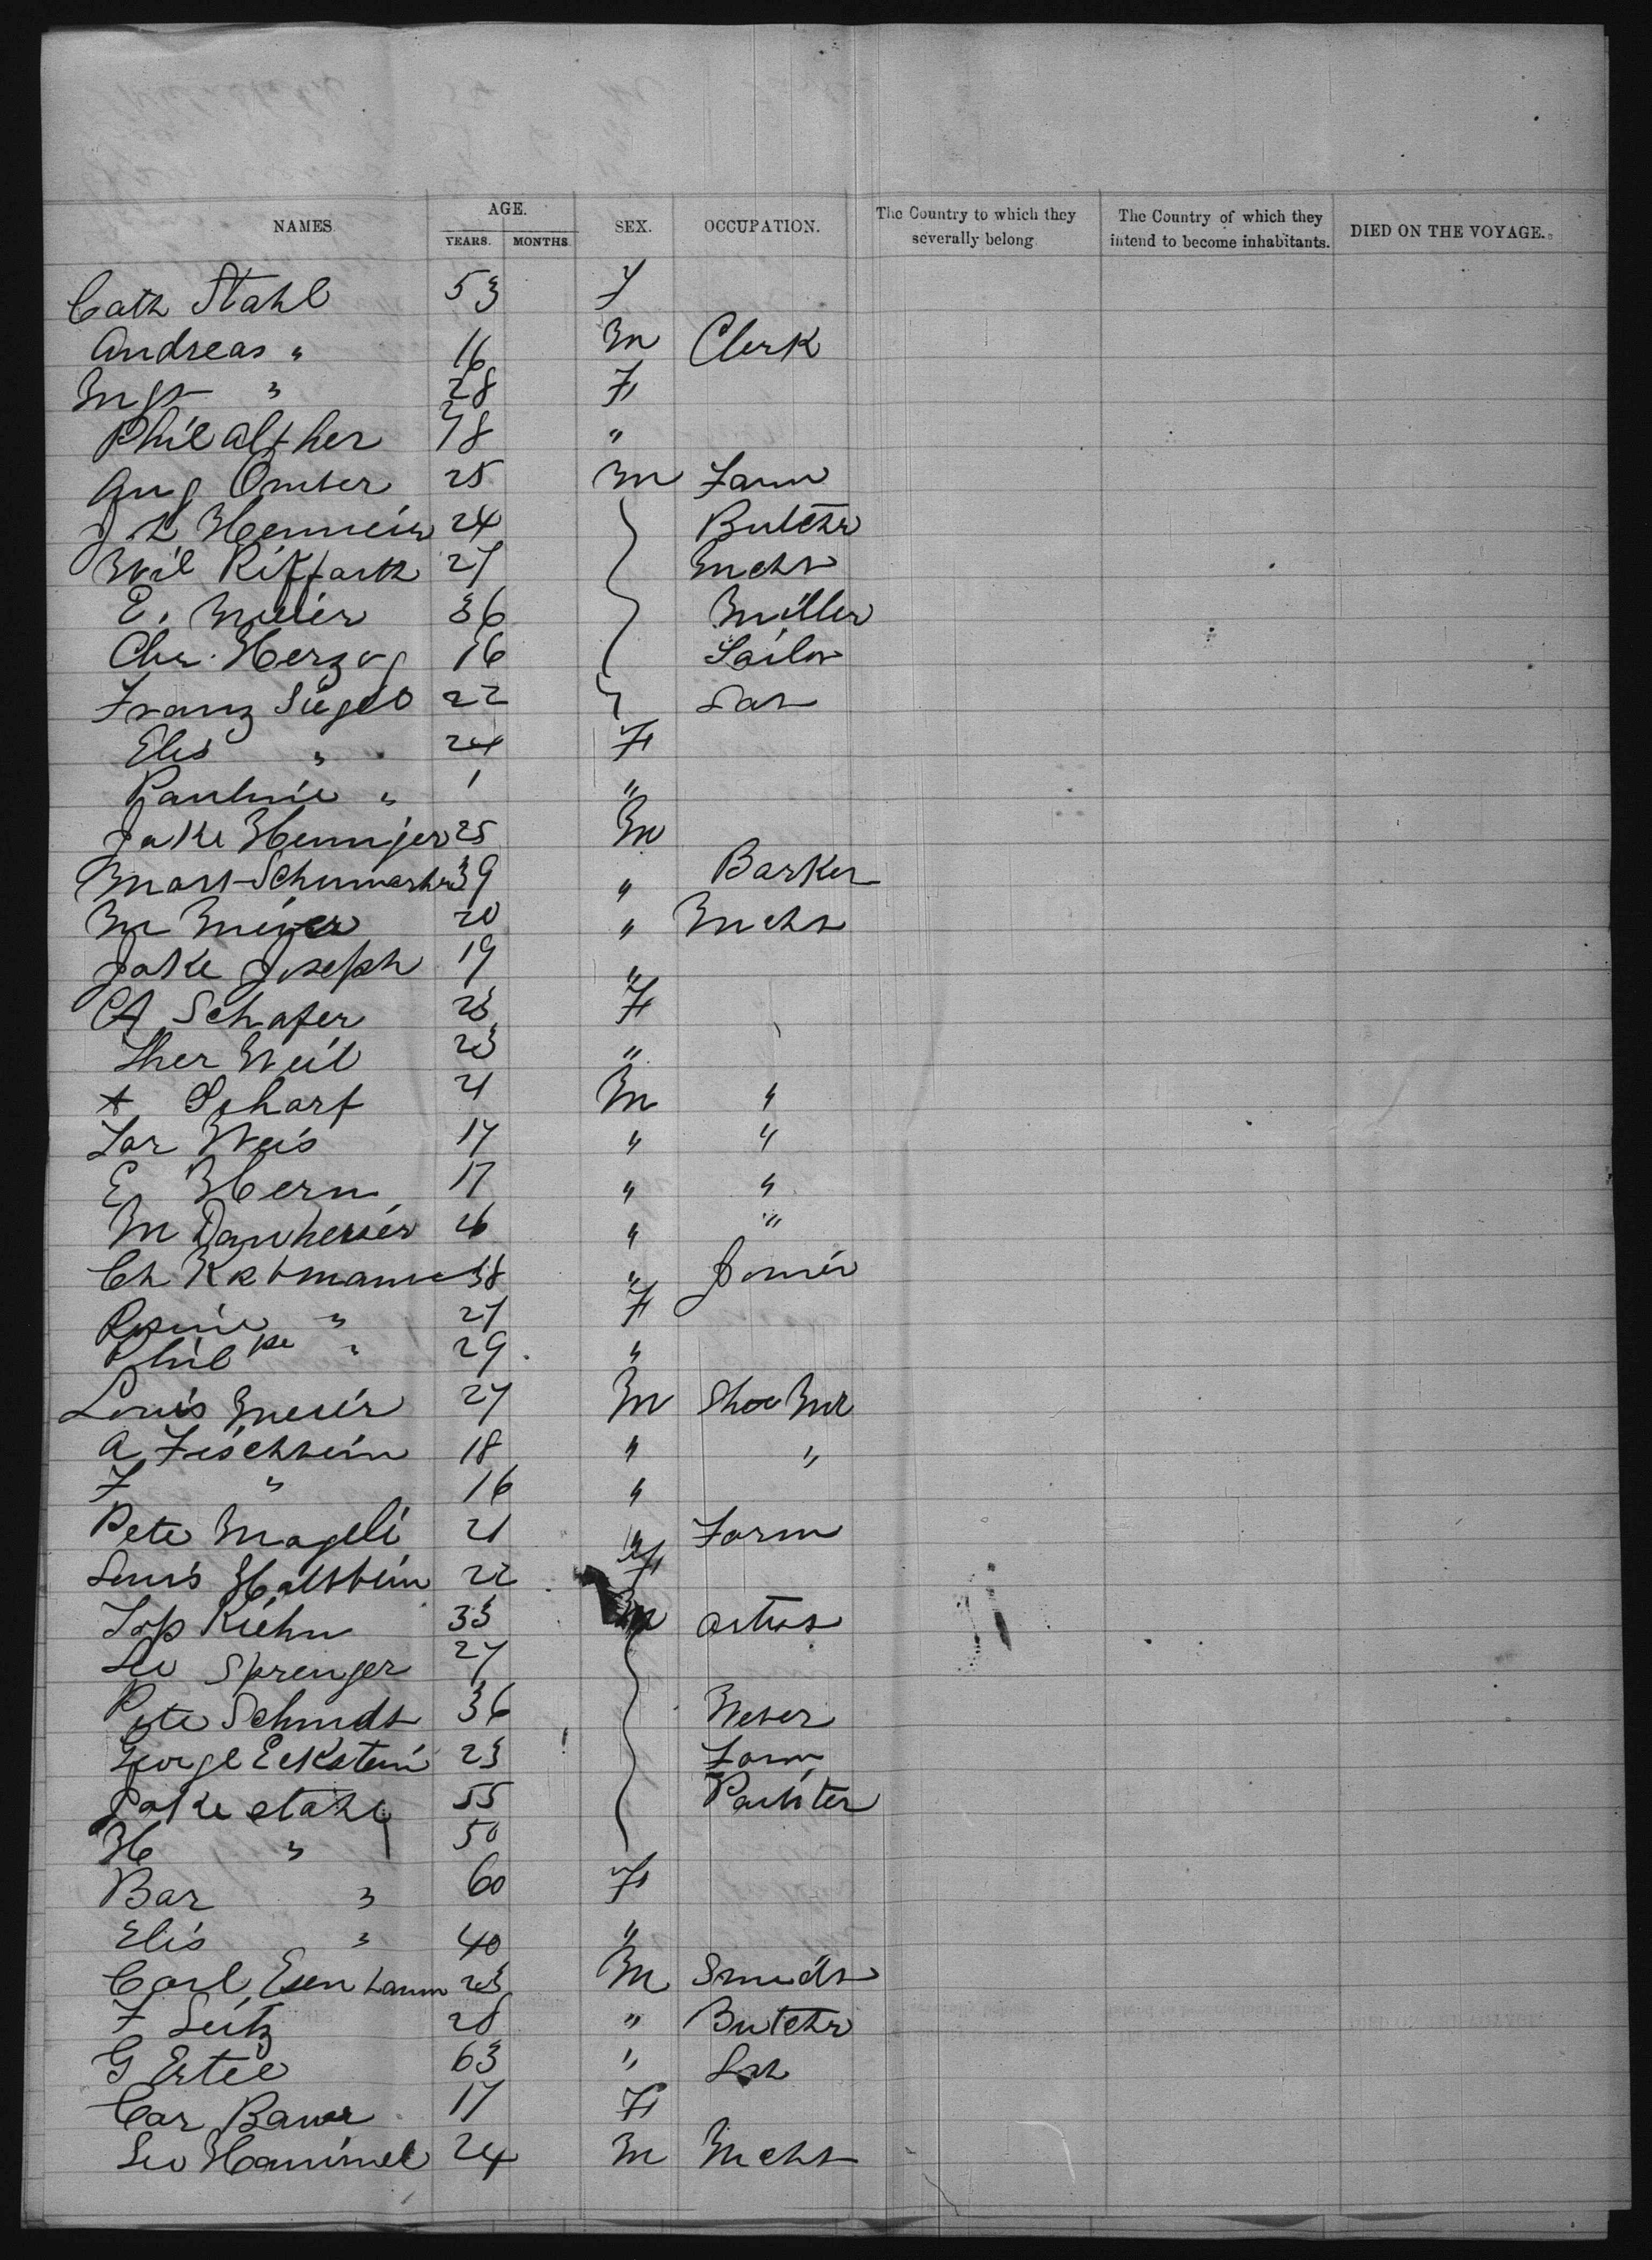 NAMES. AGE. SEX. OCCUPATION. The Country to which they severally belong The Country of which they intend to become inhabitants. DIED ON THE VOYAGE.
YEARS. MONTHS.
Cath Stahl 53 F
Andreas " 16 M Clerk
Mgt " 28 F
Phil Alther 48 "
Aug 25 M Farm
J L 24 Butchr
Wil Riffarth 27 Mcht
E. Meier 36 Miller
Chr. Herzog 16 Sailor
Franz Siegel 22
Elis " 24 F
Pauline " 1 "
Jake Henniger 25 M
Mart Schumachr 39 " Barker
M Meier 20 " Mcht
Jake Joseph 19 "
A Schafer 23 F
Ther Weil 23 "
A Scharf 21 M "
Lar Weis 17 " "
E Hern 17 " "
M 26 " "
Ch 38 " Joiner
Rosine " 27 F
Philpe " 29 "
Louis Meier 27 M Shoe Mk
A Fischbein 18 " "
F " 16 "
Pete Mageli 21 " Farm
Louis Hallstein 22 F
Jos Kiehn 33 M
Leo Sprenger 27
Pete Schmidt 36 Wever
George Eckstein 23 Farm
Jake Stahl 55 Painter
H " 50
Bar " 60 F
Elis " 40 "
Carl 23 M Smidt
F Seitz 28 " Butchr
G Ertel 63 "
Car Bauer 17 F
Leo Hammel 24 M Mcht